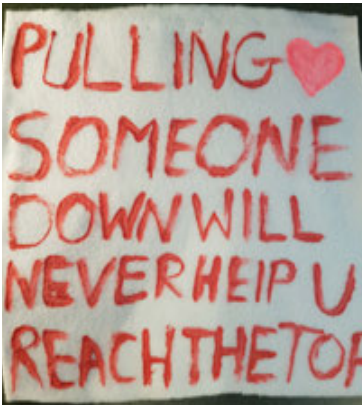 PULLING
SOMEONE
DOWN WILL
NEVER HElP U
REACH THE TOP